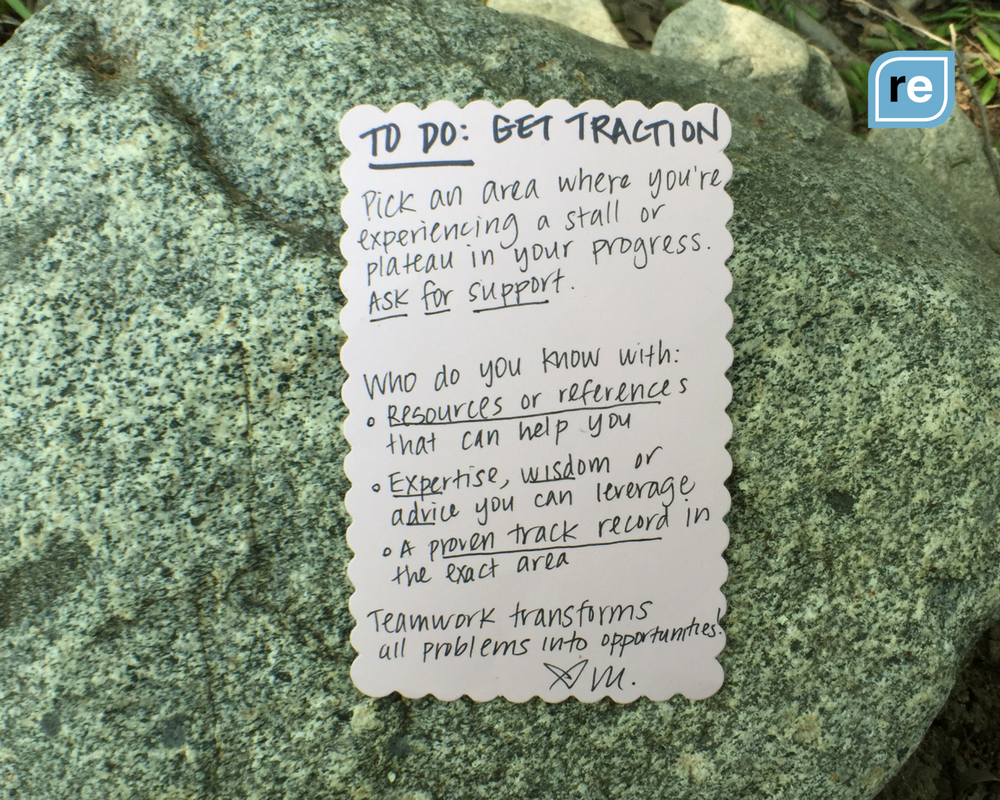 re
TO DO: GET TRACTION
Pick an area where you're
experiencing a stall or
plateau in your progress.
Ask for support.
Who do you know with:
• Resources or references
that can help you
• Expertise, wisdom or
advice you can leverage
• A proven track record in
the exact area
Teamwork transforms
all problems into opportunities!
M.